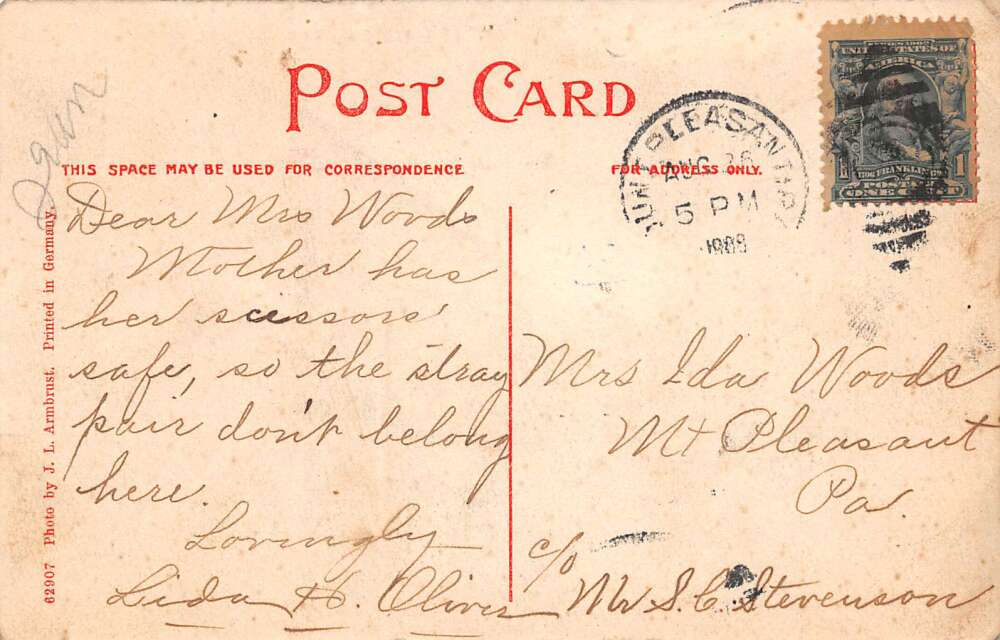 POST CARD
THIS SPACE MAY BE USED FOR CORRESPONDENCE
FOR ADDRESS ONLY.
62907 Photo by J. L. Armbrust. Printed in Germany.
Dear Mrs Woods
Mother has
her scissors
safe, so the stray
pair don't belong
here.
Lovingly
Lida H. Oliver
Mrs Ida Woods
Mt Pleasant
Pa.
c/o
Mr S. C. Stevenson
MOUNT PLEASANT
AUG 26
5 PM
SERIES 1902
UNITED STATES OF
AMERICA
FRANKLIN
1
POSTAGE
ONE CENT